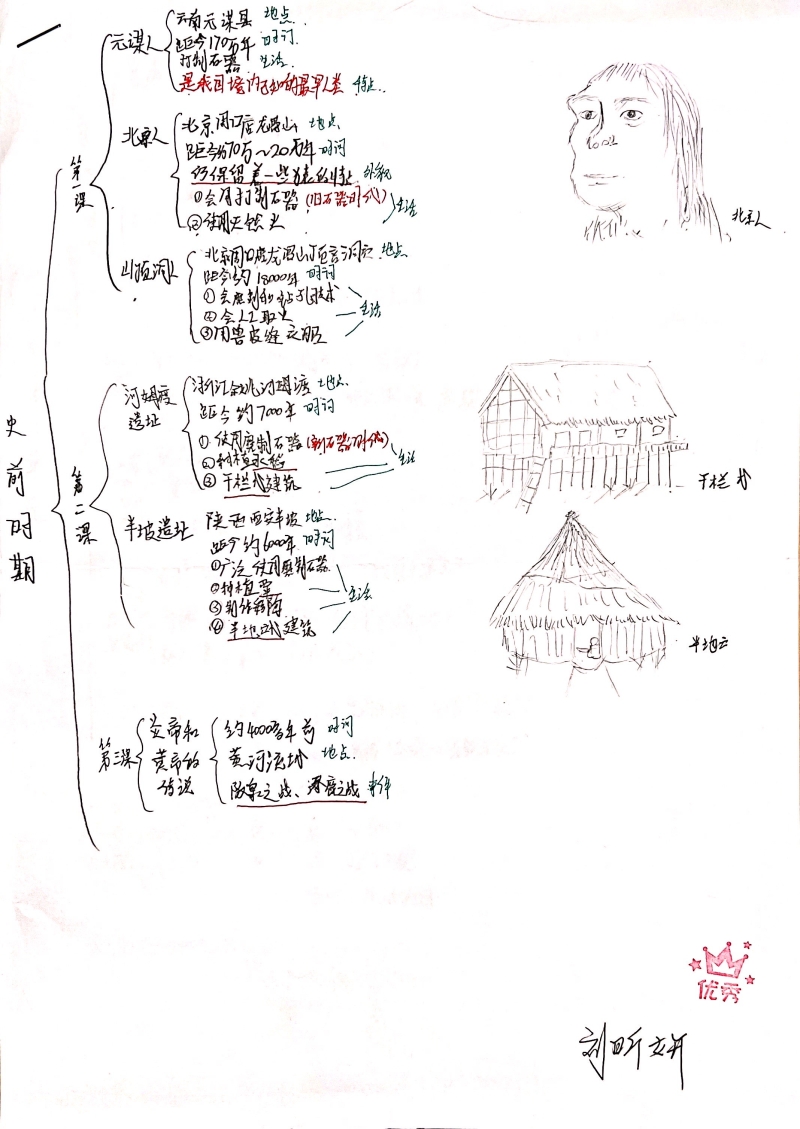 史前时期
第一课
元谋人
云南元谋县 地点
距今170万年 时间
打制石器 生活
是我国境内已知的最早人类 特点
北京人
北京周口店龙骨山 地点
距今约70万~20万年 时间
仍保留着一些猿的特征 外貌
①会用打制石器(旧石器时代)
②使用天然火
生活
山顶洞人
北京周口店龙骨山顶部洞穴 地点
距今约18000年 时间
①会磨制和钻孔技术
②会人工取火
③用兽皮缝衣服
生活
第二课
河姆渡
遗址
浙江余姚河姆渡 地点
距今约7000年 时间
①使用磨制石器(新石器时代)
②种植水稻
③干栏式建筑
生活
半坡遗址
陕西西安半坡 地点
距今约6000年 时间
①广泛使用磨制石器
②种植粟
③制作彩陶
④半地穴式建筑
生活
第三课
炎帝和
黄帝的
传说
约4000多年前 时间
黄河流域 地点
阪泉之战、涿鹿之战 事件
北京人
干栏式
半地穴
优秀
刘昕妍